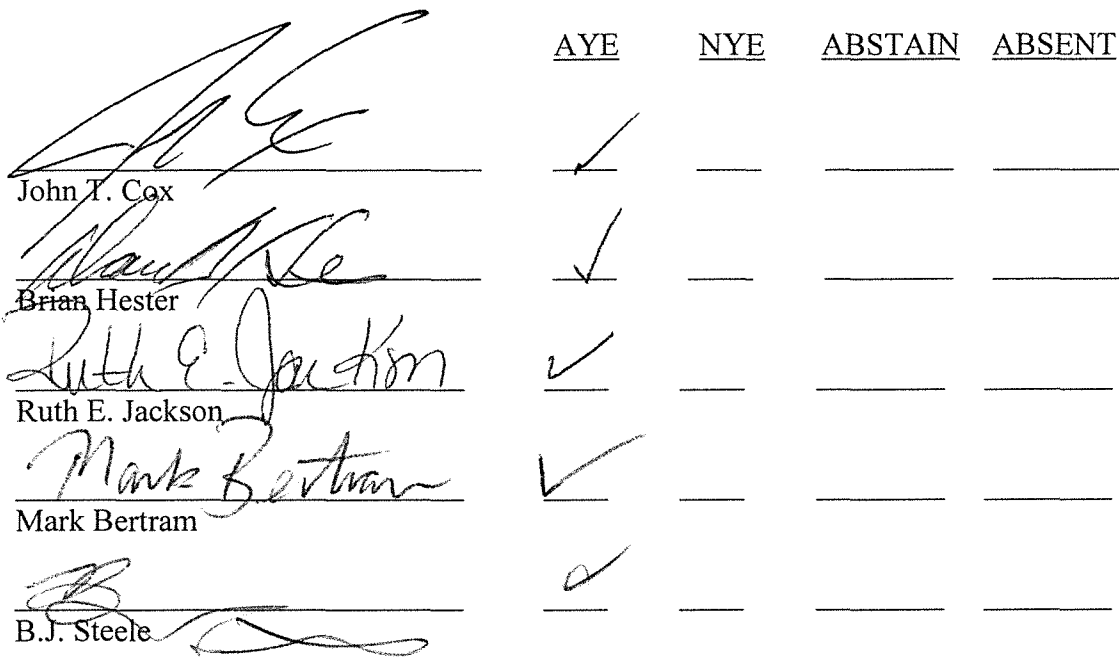 AYE NYE ABSTAIN ABSENT
John T. Cox
Brian Hester
Ruth E. Jackson
Ruth E. Jackson
Mark Bertram
Mark Bertram
B.J. Steele